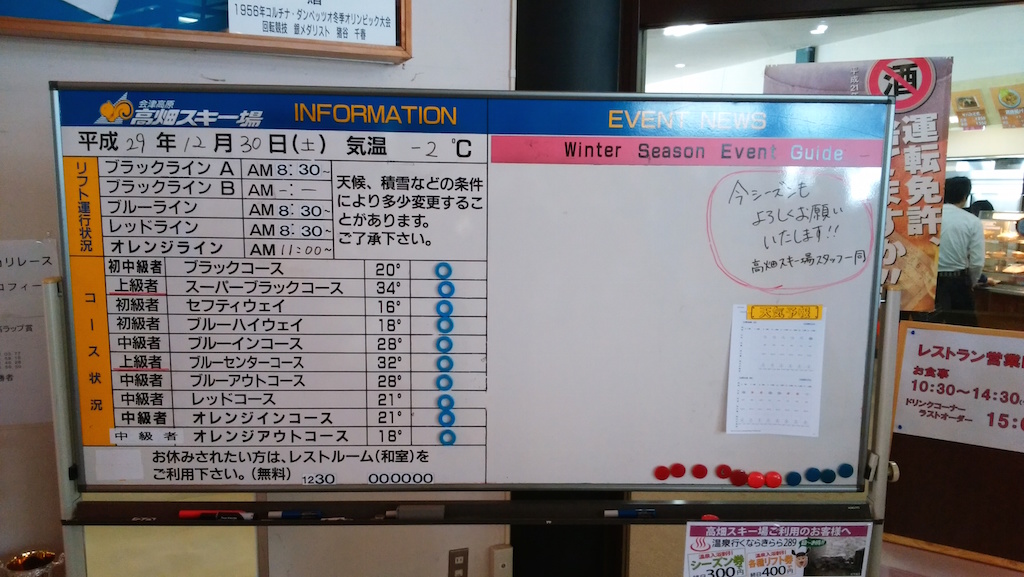 1956年コルチナ・ダンペッツオ冬季オリンピック大会
回転競技 銀メダリスト 猪谷 千春
会津高原
高畑スキー場
INFORMATION
EVENT NEWS
平成 29 年 12 月 30 日(土) 気温 -2 ℃
Winter Season Event Guide
リフト運行状況
ブラックライン A AM 8:30~
ブラックライン B AM -:-
ブルーライン AM 8:30~
レッドライン AM 8:30~
オレンジライン AM 11:00~
天候、積雪などの条件
により多少変更するこ
とがあります。
ご了承下さい。
コース状況
初中級者 ブラックコース 20°
上級者 スーパーブラックコース 34°
初級者 セフティウェイ 16°
初級者 ブルーハイウェイ 18°
中級者 ブルーインコース 28°
上級者 ブルーセンターコース 32°
中級者 ブルーアウトコース 28°
中級者 レッドコース 21°
中級者 オレンジインコース 21°
中級者 オレンジアウトコース 18°
お休みされたい方は、レストルーム(和室)を
ご利用下さい。(無料) 1230 000000
今シーズンも
よろしくお願い
いたします!!
高畑スキー場スタッフ一同
天気予報
酒
運転免許、
レストラン営業
お食事
10:30～14:30
ドリンクコーナー
ラストオーダー 15:0
高畑スキー場ご利用のお客様へ
温泉行くならきらら289
シーズン券
300円
各種リフト券
400円